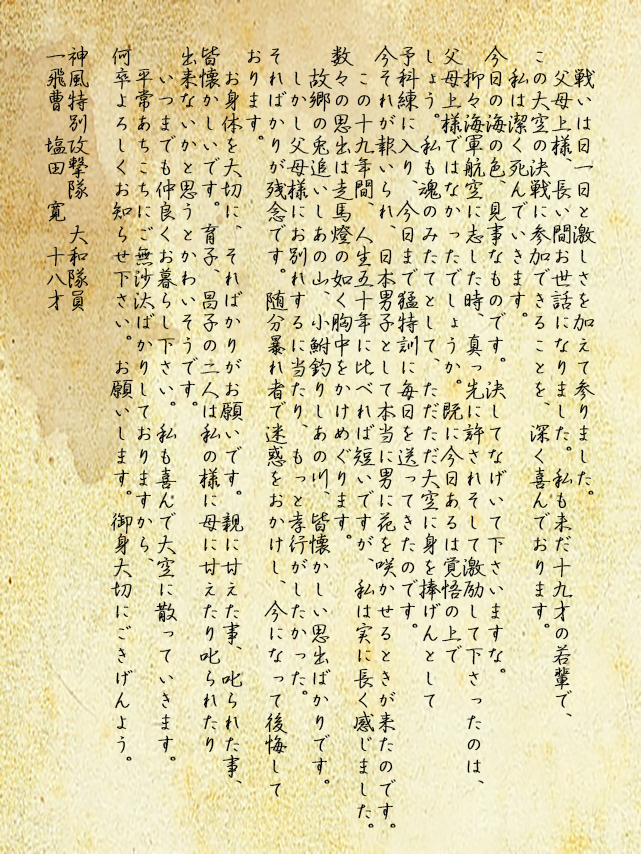 戦いは日一日と激しさを加えて参りました。
父母上様、長い間お世話になりました。私も未だ十九才の若輩で、
この大空の決戦に参加できることを、深く喜んでおります。
私は潔く死んでいきます。
今日の海の色、見事なものです。決してなげいて下さいますな。
抑々海軍航空に志した時、真っ先に許されそして激励して下さったのは、
父母上様ではなかったでしょうか。既に今日あるは覚悟の上で
しょう。私も魂のみたてとして、ただただ大空に身を捧げんとして
予科練に入り、今日まで猛特訓に毎日を送ってきたのです。
今それが報いられ、日本男子として本当に男に花を咲かせるときが来たのです。
この十九年間、人生五十年に比べれば短いですが、私は実に長く感じました。
数々の思出は走馬燈の如く胸中をかけめぐります。
故郷の兎追いしあの山、小鮒釣りしあの川、皆懐かしい思出ばかりです。
しかし父母様にお別れするに当たり、もっと孝行がしたかった。
そればかりが残念です。随分暴れ者で迷惑をおかけし、今になって後悔して
おります。
お身体を大切に、そればかりがお願いです。親に甘えた事、叱られた事、
皆懐かしいです。育子、昌子の二人は私の様に母に甘えたり叱られたり
出来ないかと思うとかわいそうです。
いつまでも仲良くお暮らし下さい。私も喜んで大空に散っていきます。
平常あちこちにご無沙汰ばかりしておりますから、
何卒よろしくお知らせ下さい。お願いします。御身大切にごきげんよう。
神風特別攻撃隊 大和隊員
一飛曹 塩田 寛 十八才